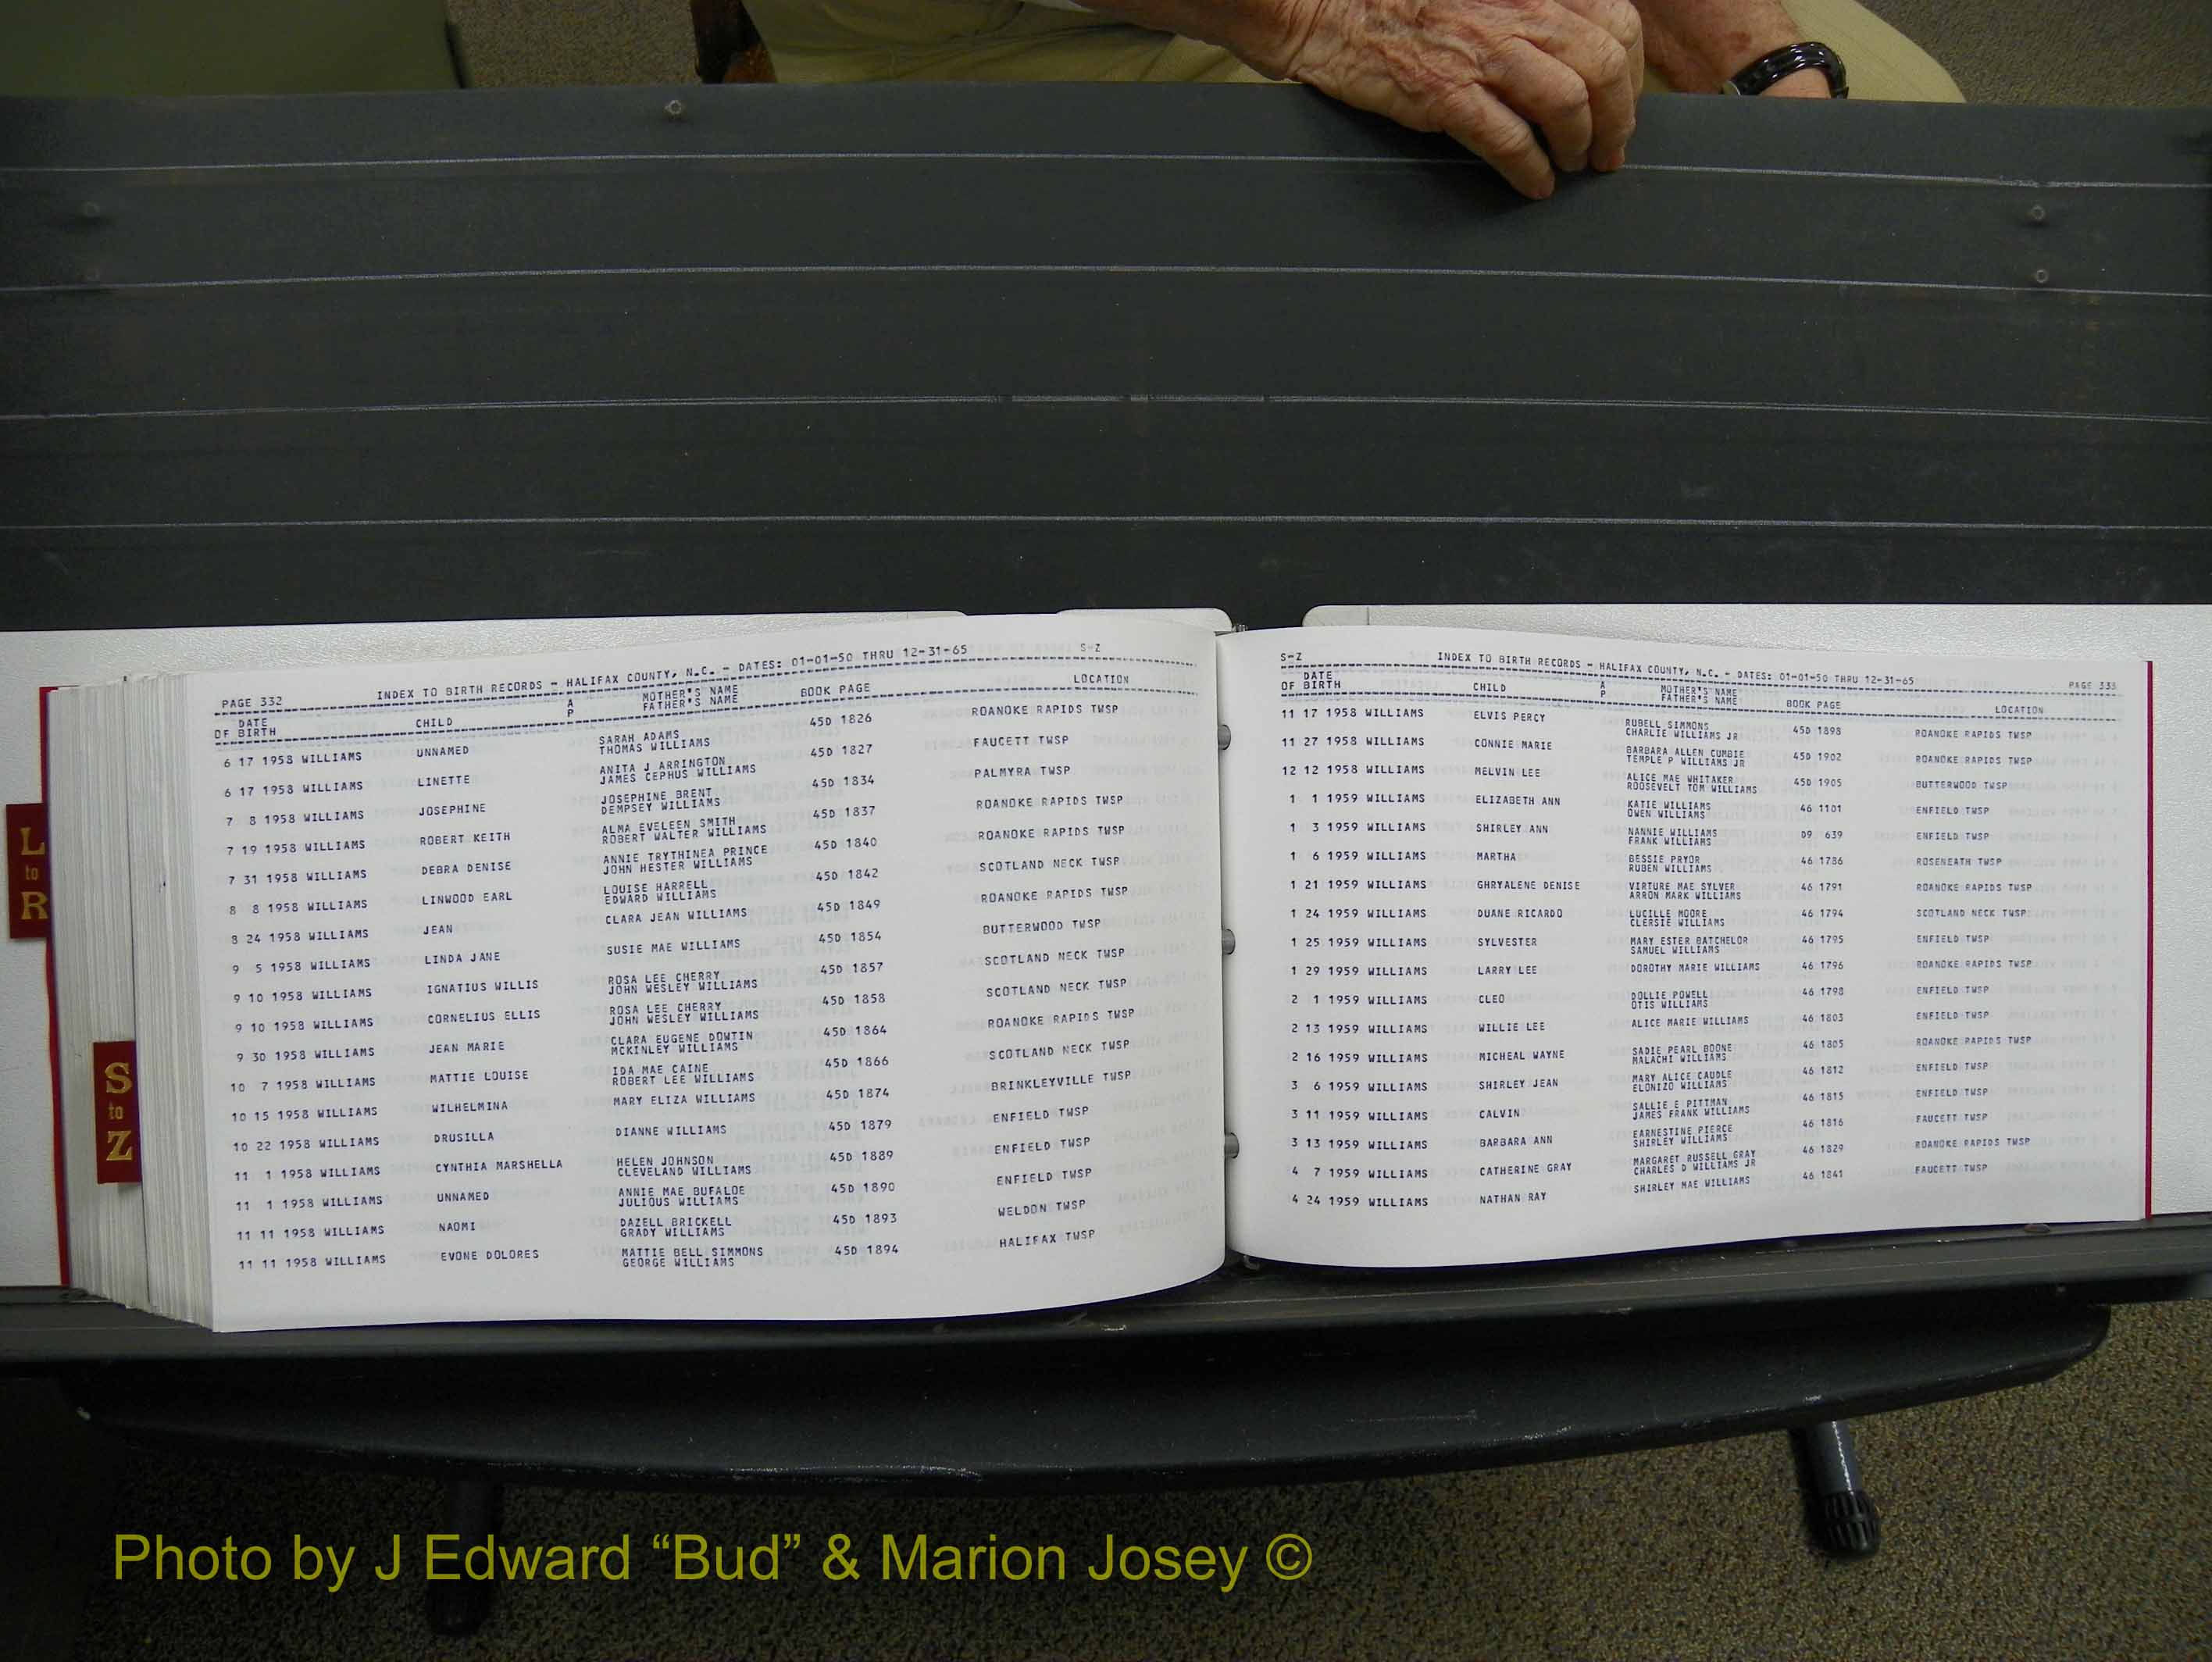 PAGE 332 INDEX TO BIRTH RECORDS - HALIFAX COUNTY, N.C. - DATES: 01-01-50 THRU 12-31-65 S-Z
DATE OF BIRTH CHILD A P MOTHER'S NAME FATHER'S NAME BOOK PAGE LOCATION
6 17 1958 WILLIAMS UNNAMED SARAH ADAMS THOMAS WILLIAMS 45D 1826 ROANOKE RAPIDS TWSP
6 17 1958 WILLIAMS LINETTE ANITA J ARRINGTON JAMES CEPHUS WILLIAMS 45D 1827 FAUCETT TWSP
7 8 1958 WILLIAMS JOSEPHINE JOSEPHINE BRENT DEMPSEY WILLIAMS 45D 1834 PALMYRA TWSP
7 19 1958 WILLIAMS ROBERT KEITH ALMA EVELEEN SMITH ROBERT WALTER WILLIAMS 45D 1837 ROANOKE RAPIDS TWSP
7 31 1958 WILLIAMS DEBRA DENISE ANNIE TRYTHINEA PRINCE JOHN HESTER WILLIAMS 45D 1840 ROANOKE RAPIDS TWSP
8 8 1958 WILLIAMS LINWOOD EARL LOUISE HARRELL EDWARD WILLIAMS 45D 1842 SCOTLAND NECK TWSP
8 24 1958 WILLIAMS JEAN CLARA JEAN WILLIAMS 45D 1849 ROANOKE RAPIDS TWSP
9 5 1958 WILLIAMS LINDA JANE SUSIE MAE WILLIAMS 45D 1854 BUTTERWOOD TWSP
9 10 1958 WILLIAMS IGNATIUS WILLIS ROSA LEE CHERRY JOHN WESLEY WILLIAMS 45D 1857 SCOTLAND NECK TWSP
9 10 1958 WILLIAMS CORNELIUS ELLIS ROSA LEE CHERRY JOHN WESLEY WILLIAMS 45D 1858 SCOTLAND NECK TWSP
9 30 1958 WILLIAMS JEAN MARIE CLARA EUGENE DOWTIN MCKINLEY WILLIAMS 45D 1864 ROANOKE RAPIDS TWSP
10 7 1958 WILLIAMS MATTIE LOUISE IDA MAE CAINE ROBERT LEE WILLIAMS 45D 1866 SCOTLAND NECK TWSP
10 15 1958 WILLIAMS WILHELMINA MARY ELIZA WILLIAMS 45D 1874 BRINKLEYVILLE TWSP
10 22 1958 WILLIAMS DRUSILLA DIANNE WILLIAMS 45D 1879 ENFIELD TWSP
11 1 1958 WILLIAMS CYNTHIA MARSHELLA HELEN JOHNSON CLEVELAND WILLIAMS 45D 1889 ENFIELD TWSP
11 1 1958 WILLIAMS UNNAMED ANNIE MAE BUFALOE JULIOUS WILLIAMS 45D 1890 ENFIELD TWSP
11 11 1958 WILLIAMS NAOMI DAZELL BRICKELL GRADY WILLIAMS 45D 1893 WELDON TWSP
11 11 1958 WILLIAMS EVONE DOLORES MATTIE BELL SIMMONS GEORGE WILLIAMS 45D 1894 HALIFAX TWSP
L to R
S to Z
S-Z INDEX TO BIRTH RECORDS - HALIFAX COUNTY, N.C. - DATES: 01-01-50 THRU 12-31-65 PAGE 333
DATE OF BIRTH CHILD A P MOTHER'S NAME FATHER'S NAME BOOK PAGE LOCATION
11 17 1958 WILLIAMS ELVIS PERCY RUBELL SIMMONS CHARLIE WILLIAMS JR 45D 1898 ROANOKE RAPIDS TWSP
11 27 1958 WILLIAMS CONNIE MARIE BARBARA ALLEN CUMBIE TEMPLE P WILLIAMS JR 45D 1902 ROANOKE RAPIDS TWSP
12 12 1958 WILLIAMS MELVIN LEE ALICE MAE WHITAKER ROOSEVELT TOM WILLIAMS 45D 1905 BUTTERWOOD TWSP
1 1 1959 WILLIAMS ELIZABETH ANN KATIE WILLIAMS OWEN WILLIAMS 46 1101 ENFIELD TWSP
1 3 1959 WILLIAMS SHIRLEY ANN NANNIE WILLIAMS FRANK WILLIAMS D9 639 ENFIELD TWSP
1 6 1959 WILLIAMS MARTHA BESSIE PRYOR RUBEN WILLIAMS 46 1786 ROSENEATH TWSP
1 21 1959 WILLIAMS GHRYALENE DENISE VIRTURE MAE SYLVER ARRON MARK WILLIAMS 46 1791 ROANOKE RAPIDS TWSP
1 24 1959 WILLIAMS DUANE RICARDO LUCILLE MOORE CLERSIE WILLIAMS 46 1794 SCOTLAND NECK TWSP
1 25 1959 WILLIAMS SYLVESTER MARY ESTER BATCHELOR SAMUEL WILLIAMS 46 1795 ENFIELD TWSP
1 29 1959 WILLIAMS LARRY LEE DOROTHY MARIE WILLIAMS 46 1796 ROANOKE RAPIDS TWSP
2 1 1959 WILLIAMS CLEO DOLLIE POWELL OTIS WILLIAMS 46 1798 ENFIELD TWSP
2 13 1959 WILLIAMS WILLIE LEE ALICE MARIE WILLIAMS 46 1803 ENFIELD TWSP
2 16 1959 WILLIAMS MICHEAL WAYNE SADIE PEARL BOONE MALACHI WILLIAMS 46 1805 ROANOKE RAPIDS TWSP
3 6 1959 WILLIAMS SHIRLEY JEAN MARY ALICE CAUDLE ELONIZO WILLIAMS 46 1812 ENFIELD TWSP
3 11 1959 WILLIAMS CALVIN SALLIE E PITTMAN JAMES FRANK WILLIAMS 46 1815 ENFIELD TWSP
3 13 1959 WILLIAMS BARBARA ANN EARNESTINE PIERCE SHIRLEY WILLIAMS 46 1816 FAUCETT TWSP
4 7 1959 WILLIAMS CATHERINE GRAY MARGARET RUSSELL GRAY CHARLES D WILLIAMS JR 46 1829 ROANOKE RAPIDS TWSP
4 24 1959 WILLIAMS NATHAN RAY SHIRLEY MAE WILLIAMS 46 1841 FAUCETT TWSP
Photo by J Edward “Bud” & Marion Josey ©